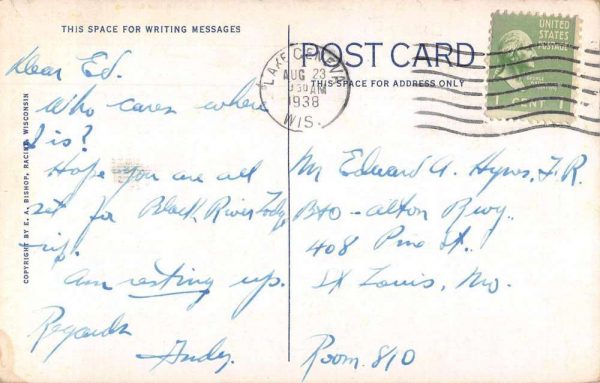 THIS SPACE FOR WRITING MESSAGES
Dear Ed.
Who cares where
I is?
Hope you are all
set for Black River Lodge
trip.
Am resting up.
Regards
Andy.
COPYRIGHT BY E. A. BISHOP, RACINE, WISCONSIN
POST CARD
THIS SPACE FOR ADDRESS ONLY
LAKE GENEVA
AUG 23
930 AM
1938
WIS.
UNITED
STATES
POSTAGE
GEORGE
WASHINGTON
1 CENT 1
Mr Edward A. Hynes, F.R.
B+O - Alton Rwy.
408 Pine St.
St Louis, Mo.
Room 810